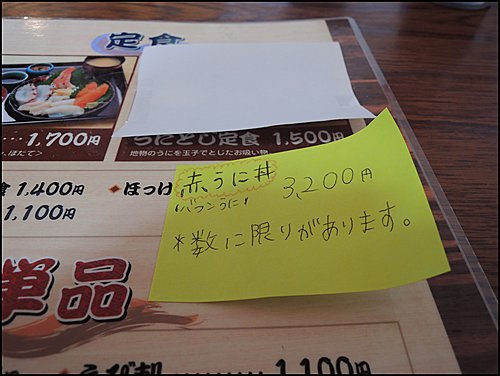 定食
1,700円
ほたて>
うにとじ定食 1,500円
地物のうにを玉子でとじたお吸い物
食 1,400円 ◆ほっけ
1,100円
赤うに丼 3,200円
(バフンうに)
*数に限りがあります。
単品
1,100円